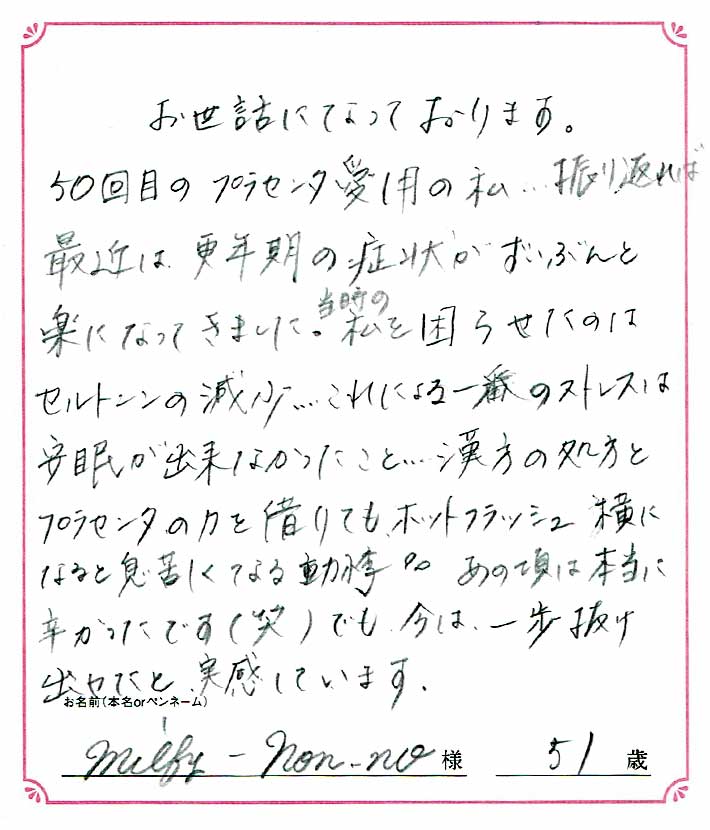 お世話になっております。
50回目のプラセンタ愛用の私…振り返れば
最近は、更年期の症状がずいぶんと
楽になってきました。当時の私を困らせたのは
セルトニンの減少…これによる一番のストレスは
安眠が出来なかったこと…漢方の処方と
プラセンタの力を借りても、ホットフラッシュ 横に
なると息苦しくなる動悸 あの頃は本当に
辛かったです(笑)でも、今は、一歩抜け
出せたと、実感しています.
お名前(本名orペンネーム)
Milfy - Non-no 様 51 歳